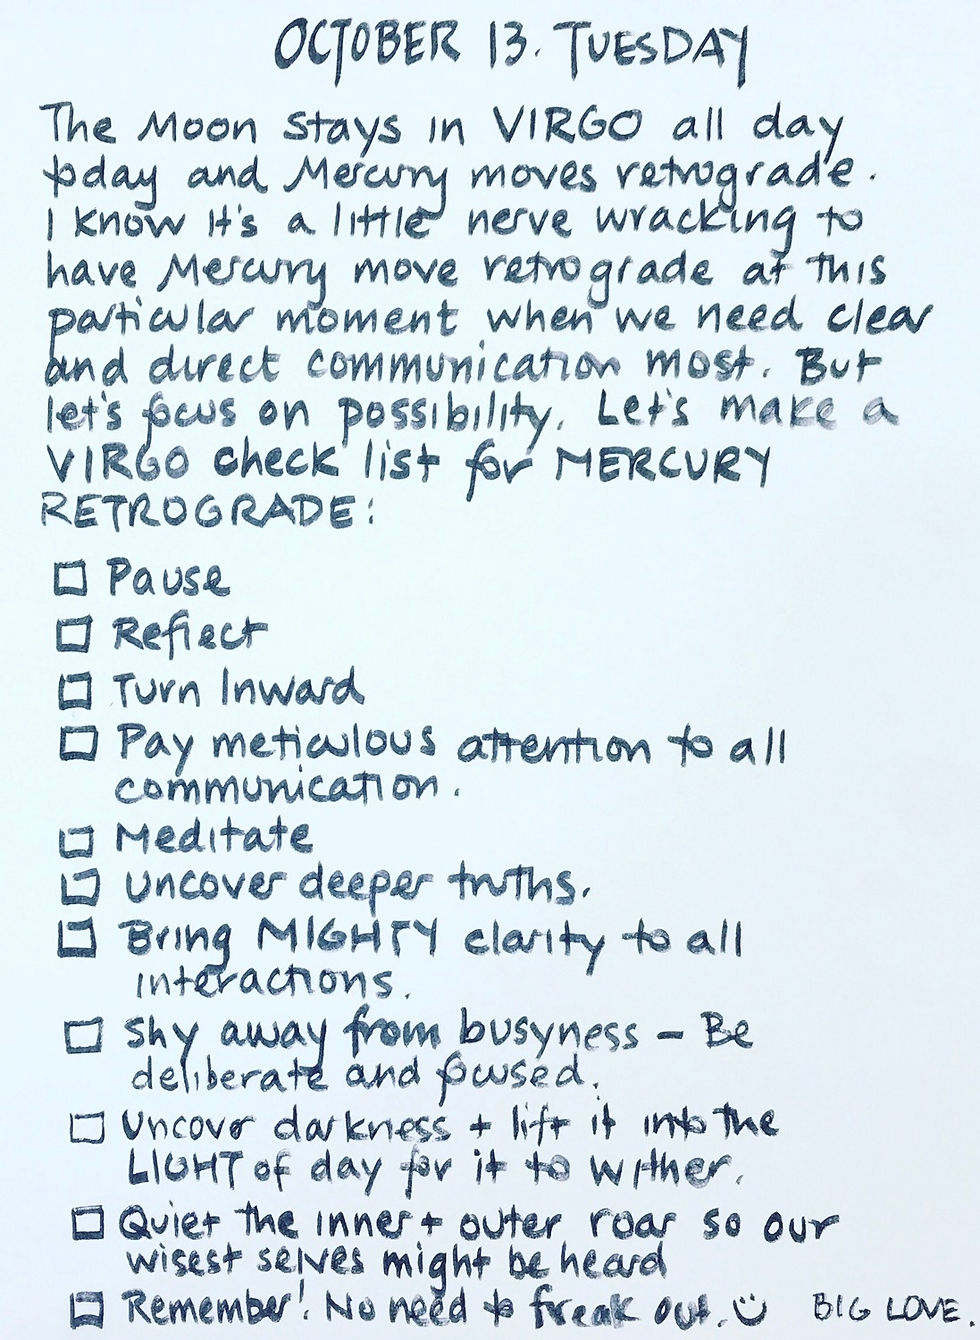 OCTOBER 13. TUESDAY
The Moon stays in VIRGO all day
today and Mercury moves retrograde.
I know it's a little nerve wracking to
have Mercury move retrograde at this
particular moment when we need clear
and direct communication most. But
let's focus on possibility. Let's make a
VIRGO check list for MERCURY
RETROGRADE:
☐ Pause
☐ Reflect
☐ Turn Inward
☐ Pay meticulous attention to all
communication.
☐ Meditate
☐ Uncover deeper truths.
☐ Bring MIGHTY clarity to all
interactions.
☐ Shy away from busyness – Be
deliberate and focused.
☐ Uncover darkness + lift it into the
LIGHT of day for it to wither.
☐ Quiet the inner + outer roar so our
wisest selves might be heard
☐ Remember! No need to freak out. ☺ BIG LOVE.